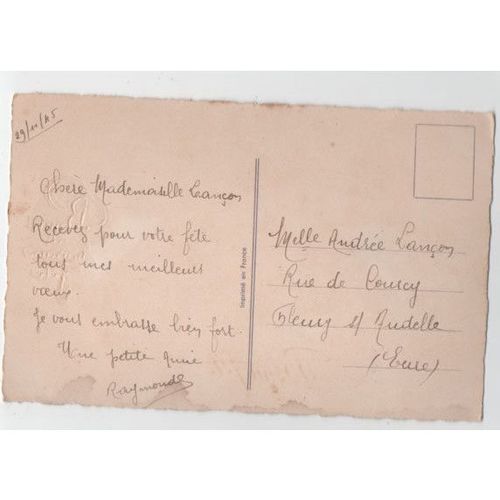 29/11/45
Chère Mademoiselle Lançon
Recevez pour votre fête
tous mes meilleurs
vœux.
Je vous embrasse bien fort.
Une petite amie
Raymonde
Imprimé en France
Melle Andrée Lançon
Rue de Coursy
Fleury s/ Andelle
(Eure)